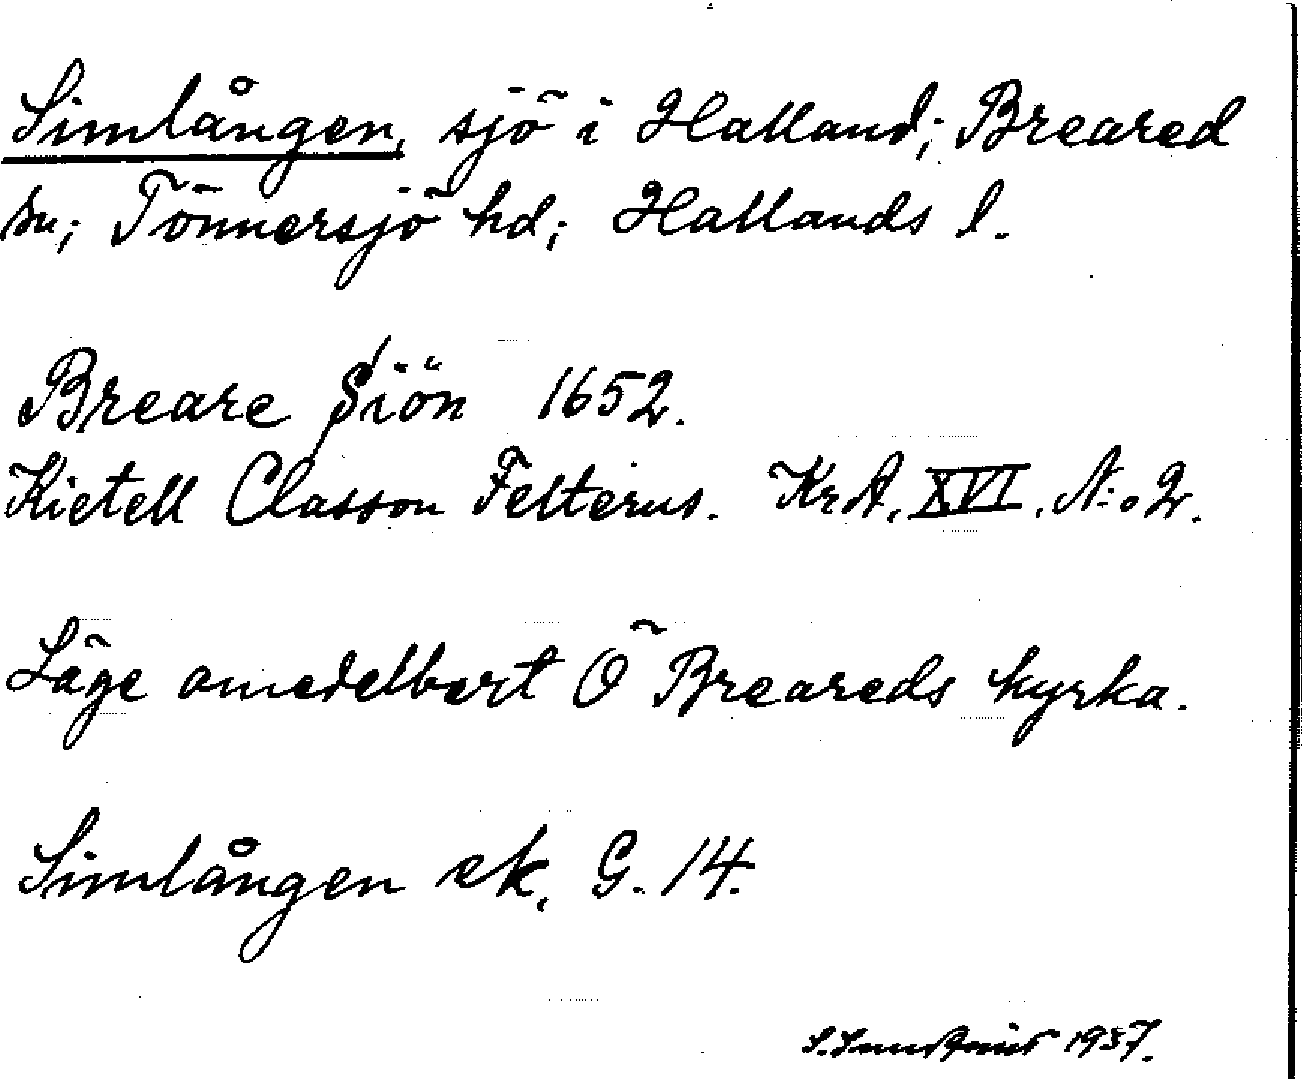 Simlången, sjö i Halland; Breared
sn; Tönnersjö hd; Hallands l.
Breare Siön 1652.
Kietell Classon Felterus. KrA. XVI. N:o 2.
Läge omedelbart Ö Breareds kyrka.
Simlången ek. G. 14.
1937.